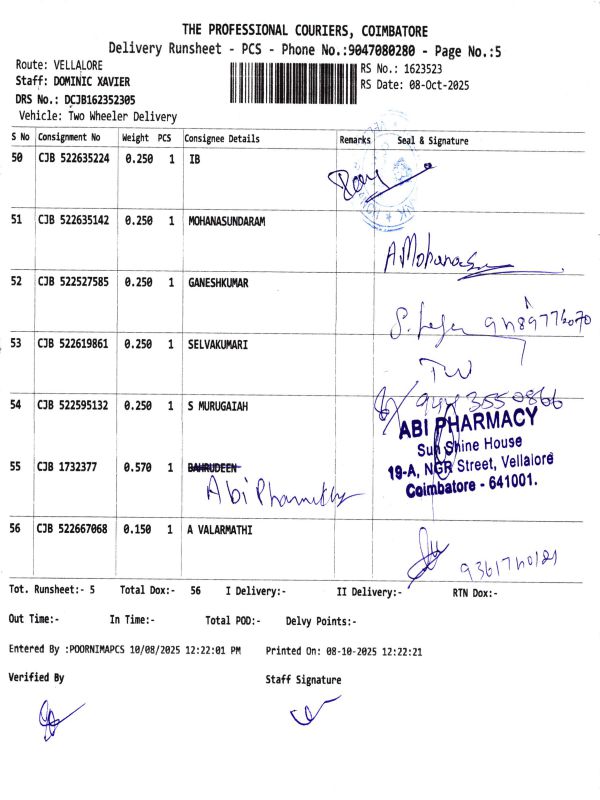 THE PROFESSIONAL COURIERS, COIMBATORE
Delivery Runsheet - PCS - Phone No.:9047080280 - Page No.:5
Route: VELLALORE
RS No.: 1623523
Staff: DOMINIC XAVIER
RS Date: 08-Oct-2025
DRS No.: DCJB162352305
Vehicle: Two Wheeler Delivery
S No Consignment No Weight PCS Consignee Details Remarks Seal & Signature
50 CJB 522635224 0.250 1 IB
51 CJB 522635142 0.250 1 MOHANASUNDARAM
A.Mohana
52 CJB 522527585 0.250 1 GANESHKUMAR
53 CJB 522619861 0.250 1 SELVAKUMARI
54 CJB 522595132 0.250 1 S MURUGAIAH
ABI PHARMACY
Sun Shine House
19-A, NGR Street, Vellalore
Coimbatore - 641001.
55 CJB 1732377 0.570 1 BAHRUDEEN
Abi
56 CJB 522667068 0.150 1 A VALARMATHI
Tot. Runsheet:- 5 Total Dox:- 56 I Delivery:- II Delivery:- RTN Dox:-
Out Time:- In Time:- Total POD:- Delvy Points:-
Entered By :POORNIMAPCS 10/08/2025 12:22:01 PM Printed On: 08-10-2025 12:22:21
Verified By Staff Signature